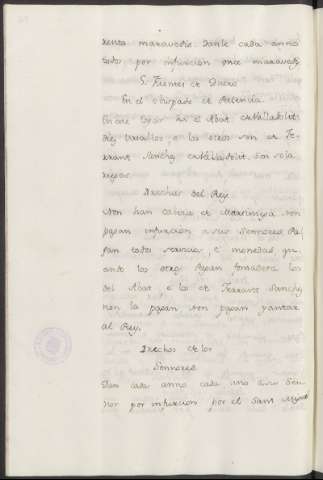 renta maravedis. Danle cada anno
todos por infurcion once maravedis
S. Fuentes de Duero
En el obispado de Palencia
En este logar ha el Abat de Valladolit
diez vasallos, e los otros son de Fe-
rrant Sanchez de Valladolit, son sola
riegos
Derechos del Rey
Non han cabeza de Martiniega non
pagan infurcion a sus Sennores Pa-
gan todos servicios, e monedas qu-
ando los otros Pagan fonsadera los
del Abat e los de Ferrant Sanchez
non la pagan non pagan yantar
al Rey
Derechos de los
Sennores
Dan cada anno cada uno a su Sen
nor por infurcion por el Sant Miguel